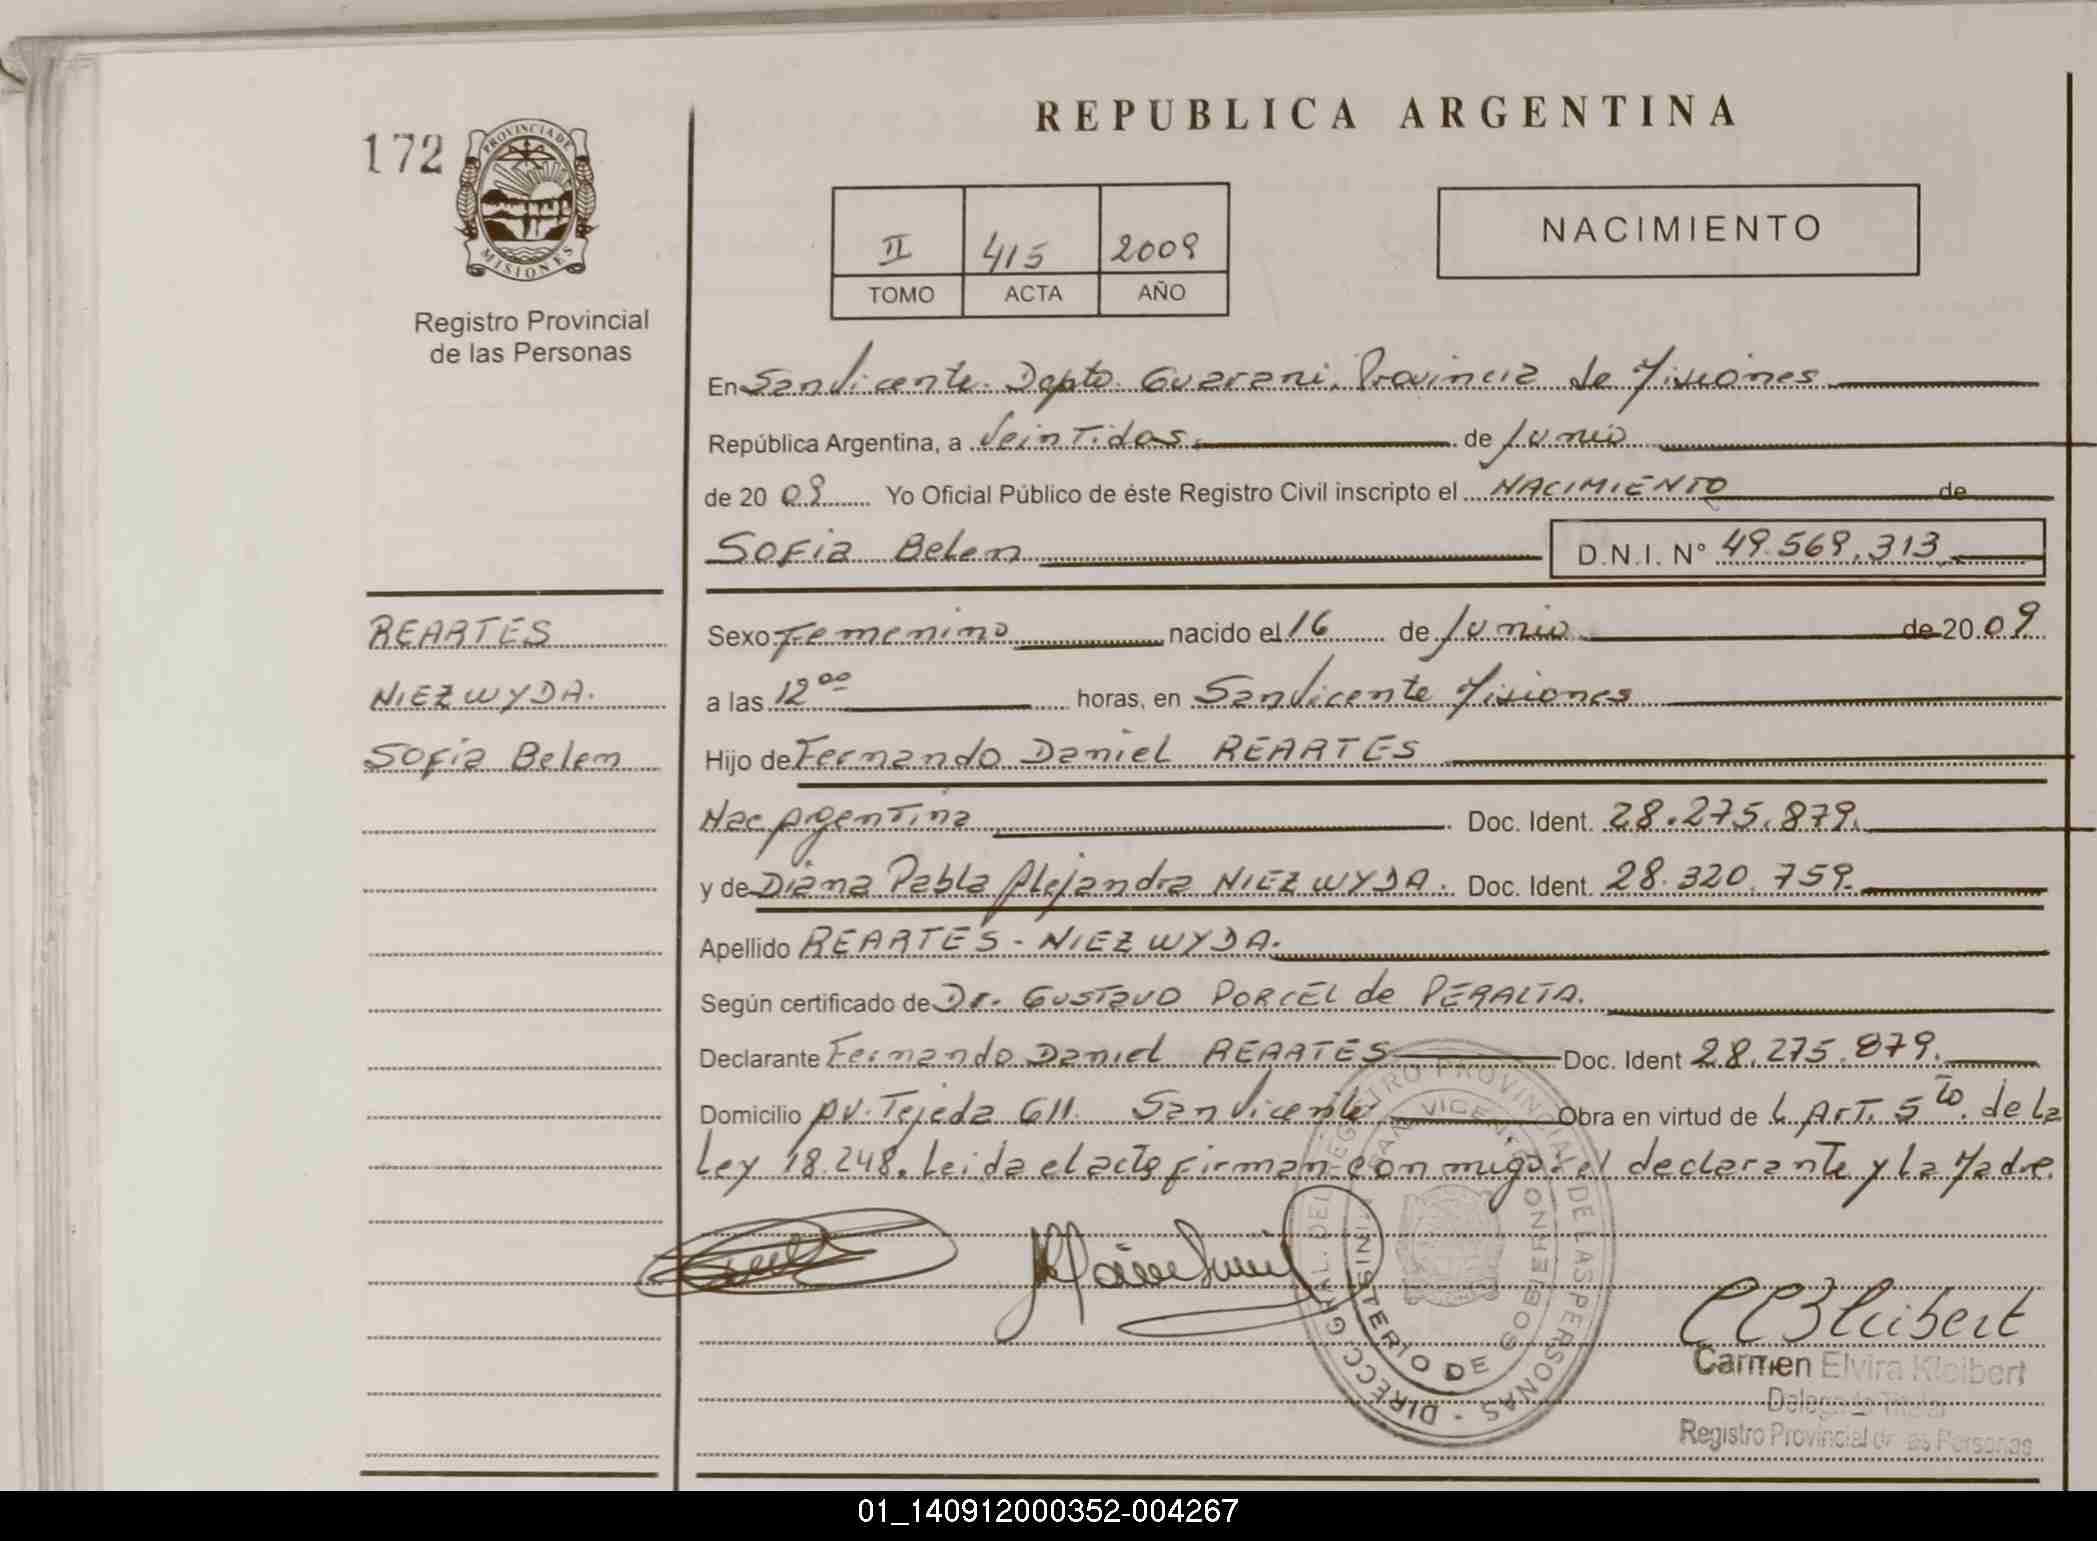 REPUBLICA ARGENTINA
172
PROVINCIA DE
MISIONES
Registro Provincial
de las Personas
II 415 2009
TOMO ACTA AÑO
NACIMIENTO
En San Vicente Depto. Guarani, Provincia de Misiones
República Argentina, a Veintidos de Junio
de 20 09 Yo Oficial Público de éste Registro Civil inscripto el NACIMIENTO de
Sofia Belen D.N.I. N° 49.569.313
REARTES
NIEZWYDA.
Sofia Belen
Sexo Femenino nacido el 16 de Junio de 20 09
a las 12 00 horas, en San Vicente Misiones
Hijo de Fernando Daniel REARTES
Nac Argentina Doc. Ident. 28.275.879.
y de Diana Pabla Alejandra NIEZWYDA. Doc. Ident. 28.320.759.
Apellido REARTES - NIEZWYDA.
Según certificado de Dr. Gustavo PORCEL de PERALTA.
Declarante Fernando Daniel REARTES Doc. Ident 28.275.879.
Domicilio Av. Tejeda 611. San Vicente Obra en virtud de L. Art. 5to. de La
Ley 18.248. Leida el acta firman con migo el declarante y La Madre.
DIRECC. GRAL. DEL REGISTRO PROVINCIAL DE LAS PERSONAS -
SAN VICENTE
MINISTERIO DE GOBIERNO
Carmen Elvira Kleibert
Delegada Titular
Registro Provincial de las Personas
01_140912000352-004267